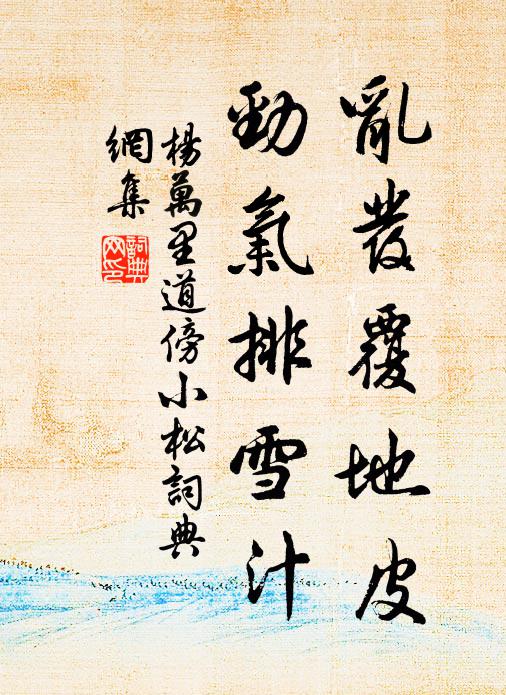 亂發覆地皮
勁氣排雪汁
楊萬里道傍小松詞典
網集
詞典
网印